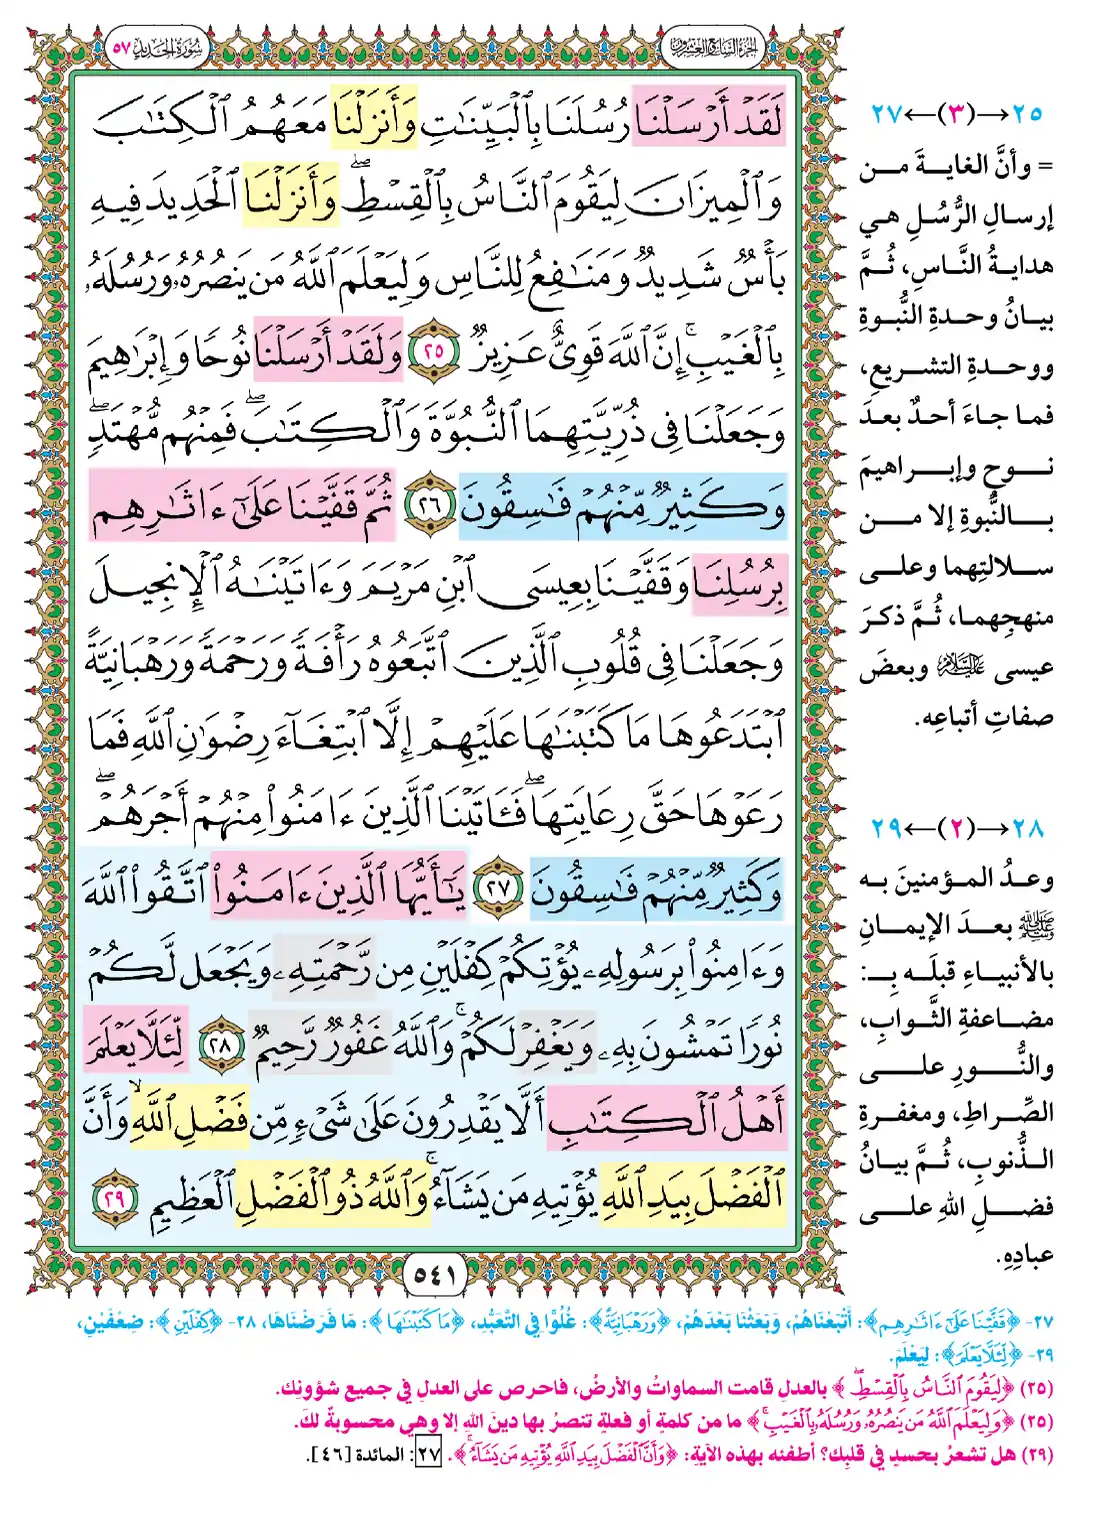 الجزء السابع والعشرون
سورة الحديد ٥٧
لَقَدْ أَرْسَلْنَا رُسُلَنَا بِالْبَيِّنَٰتِ وَأَنزَلْنَا مَعَهُمُ الْكِتَٰبَ
وَالْمِيزَانَ لِيَقُومَ النَّاسُ بِالْقِسْطِ ۖ وَأَنزَلْنَا الْحَدِيدَ فِيهِ
بَأْسٌ شَدِيدٌ وَمَنَٰفِعُ لِلنَّاسِ وَلِيَعْلَمَ اللَّهُ مَن يَنصُرُهُۥ وَرُسُلَهُۥ
بِالْغَيْبِ ۚ إِنَّ اللَّهَ قَوِيٌّ عَزِيزٌ ٢٥ وَلَقَدْ أَرْسَلْنَا نُوحًا وَإِبْرَٰهِيمَ
وَجَعَلْنَا فِي ذُرِّيَّتِهِمَا النُّبُوَّةَ وَالْكِتَٰبَ ۖ فَمِنْهُم مُّهْتَدٍ ۖ
وَكَثِيرٌ مِّنْهُمْ فَٰسِقُونَ ٢٦ ثُمَّ قَفَّيْنَا عَلَىٰٓ ءَاثَٰرِهِم
بِرُسُلِنَا وَقَفَّيْنَا بِعِيسَى ابْنِ مَرْيَمَ وَءَاتَيْنَٰهُ الْإِنجِيلَ
وَجَعَلْنَا فِي قُلُوبِ الَّذِينَ اتَّبَعُوهُ رَأْفَةً وَرَحْمَةً وَرَهْبَانِيَّةً
ابْتَدَعُوهَا مَا كَتَبْنَٰهَا عَلَيْهِمْ إِلَّا ابْتِغَآءَ رِضْوَٰنِ اللَّهِ فَمَا
رَعَوْهَا حَقَّ رِعَايَتِهَا ۖ فَـَٔاتَيْنَا الَّذِينَ ءَامَنُوا۟ مِنْهُمْ أَجْرَهُمْ ۖ
وَكَثِيرٌ مِّنْهُمْ فَٰسِقُونَ ٢٧ يَٰٓأَيُّهَا الَّذِينَ ءَامَنُوا۟ اتَّقُوا۟ اللَّهَ
وَءَامِنُوا۟ بِرَسُولِهِۦ يُؤْتِكُمْ كِفْلَيْنِ مِن رَّحْمَتِهِۦ وَيَجْعَل لَّكُمْ
نُورًا تَمْشُونَ بِهِۦ وَيَغْفِرْ لَكُمْ ۚ وَاللَّهُ غَفُورٌ رَّحِيمٌ ٢٨ لِّئَلَّا يَعْلَمَ
أَهْلُ الْكِتَٰبِ أَلَّا يَقْدِرُونَ عَلَىٰ شَيْءٍ مِّن فَضْلِ اللَّهِ ۙ وَأَنَّ
الْفَضْلَ بِيَدِ اللَّهِ يُؤْتِيهِ مَن يَشَآءُ ۚ وَاللَّهُ ذُو الْفَضْلِ الْعَظِيمِ ٢٩
٥٤١
٢٥→(٣)←٢٧
= وأنَّ الغاية من
إرسالِ الرُّسُلِ هي
هدايةُ النَّاسِ، ثُمَّ
بيانُ وحدةِ النُّبوةِ
ووحدةِ التشريعِ،
فما جاءَ أحدٌ بعدَ
نوحٍ وإبراهيمَ
بالنُّبوةِ إلا من
سلالتِهما وعلى
منهجِهما، ثُمَّ ذكرَ
عيسى عليه السلام وبعضَ
صفاتِ أتباعِه.
٢٨→(٢)←٢٩
وعدُ المؤمنينَ به
ﷺ بعدَ الإيمانِ
بالأنبياءِ قبلَه بـ:
مضاعفةِ الثَّوابِ،
والنُّورِ على
الصِّراطِ، ومغفرةِ
الذُّنوبِ، ثُمَّ بيانُ
فضلِ اللهِ على
عبادِهِ.
٢٧- ﴿قَفَّيْنَا عَلَىٰٓ ءَاثَٰرِهِم﴾: أَتْبَعْنَاهُمْ، وَبَعَثْنَا بَعْدَهُمْ، ﴿وَرَهْبَانِيَّةً﴾: غُلُوًّا فِي التَّعَبُّدِ، ﴿مَا كَتَبْنَٰهَا﴾: مَا فَرَضْنَاهَا، ٢٨- ﴿كِفْلَيْنِ﴾: ضِعْفَيْنِ،
٢٩- ﴿لِّئَلَّا يَعْلَمَ﴾: لِيَعْلَمَ.
(٢٥) ﴿لِيَقُومَ النَّاسُ بِالْقِسْطِ ۖ﴾ بالعدلِ قامت السماواتُ والأرضُ، فاحرص على العدلِ في جميع شؤونِك.
(٢٥) ﴿وَلِيَعْلَمَ اللَّهُ مَن يَنصُرُهُۥ وَرُسُلَهُۥ بِالْغَيْبِ ۚ﴾ ما من كلمةٍ أو فعلةٍ تنتصرُ بها دينَ اللهِ إلا وهي محسوبةٌ لكَ.
(٢٩) هل تشعرُ بحسدٍ في قلبِك؟ أطفئه بهذه الآية: ﴿وَأَنَّ الْفَضْلَ بِيَدِ اللَّهِ يُؤْتِيهِ مَن يَشَآءُ ۚ﴾. ٢٧: المائدة [٤٦].